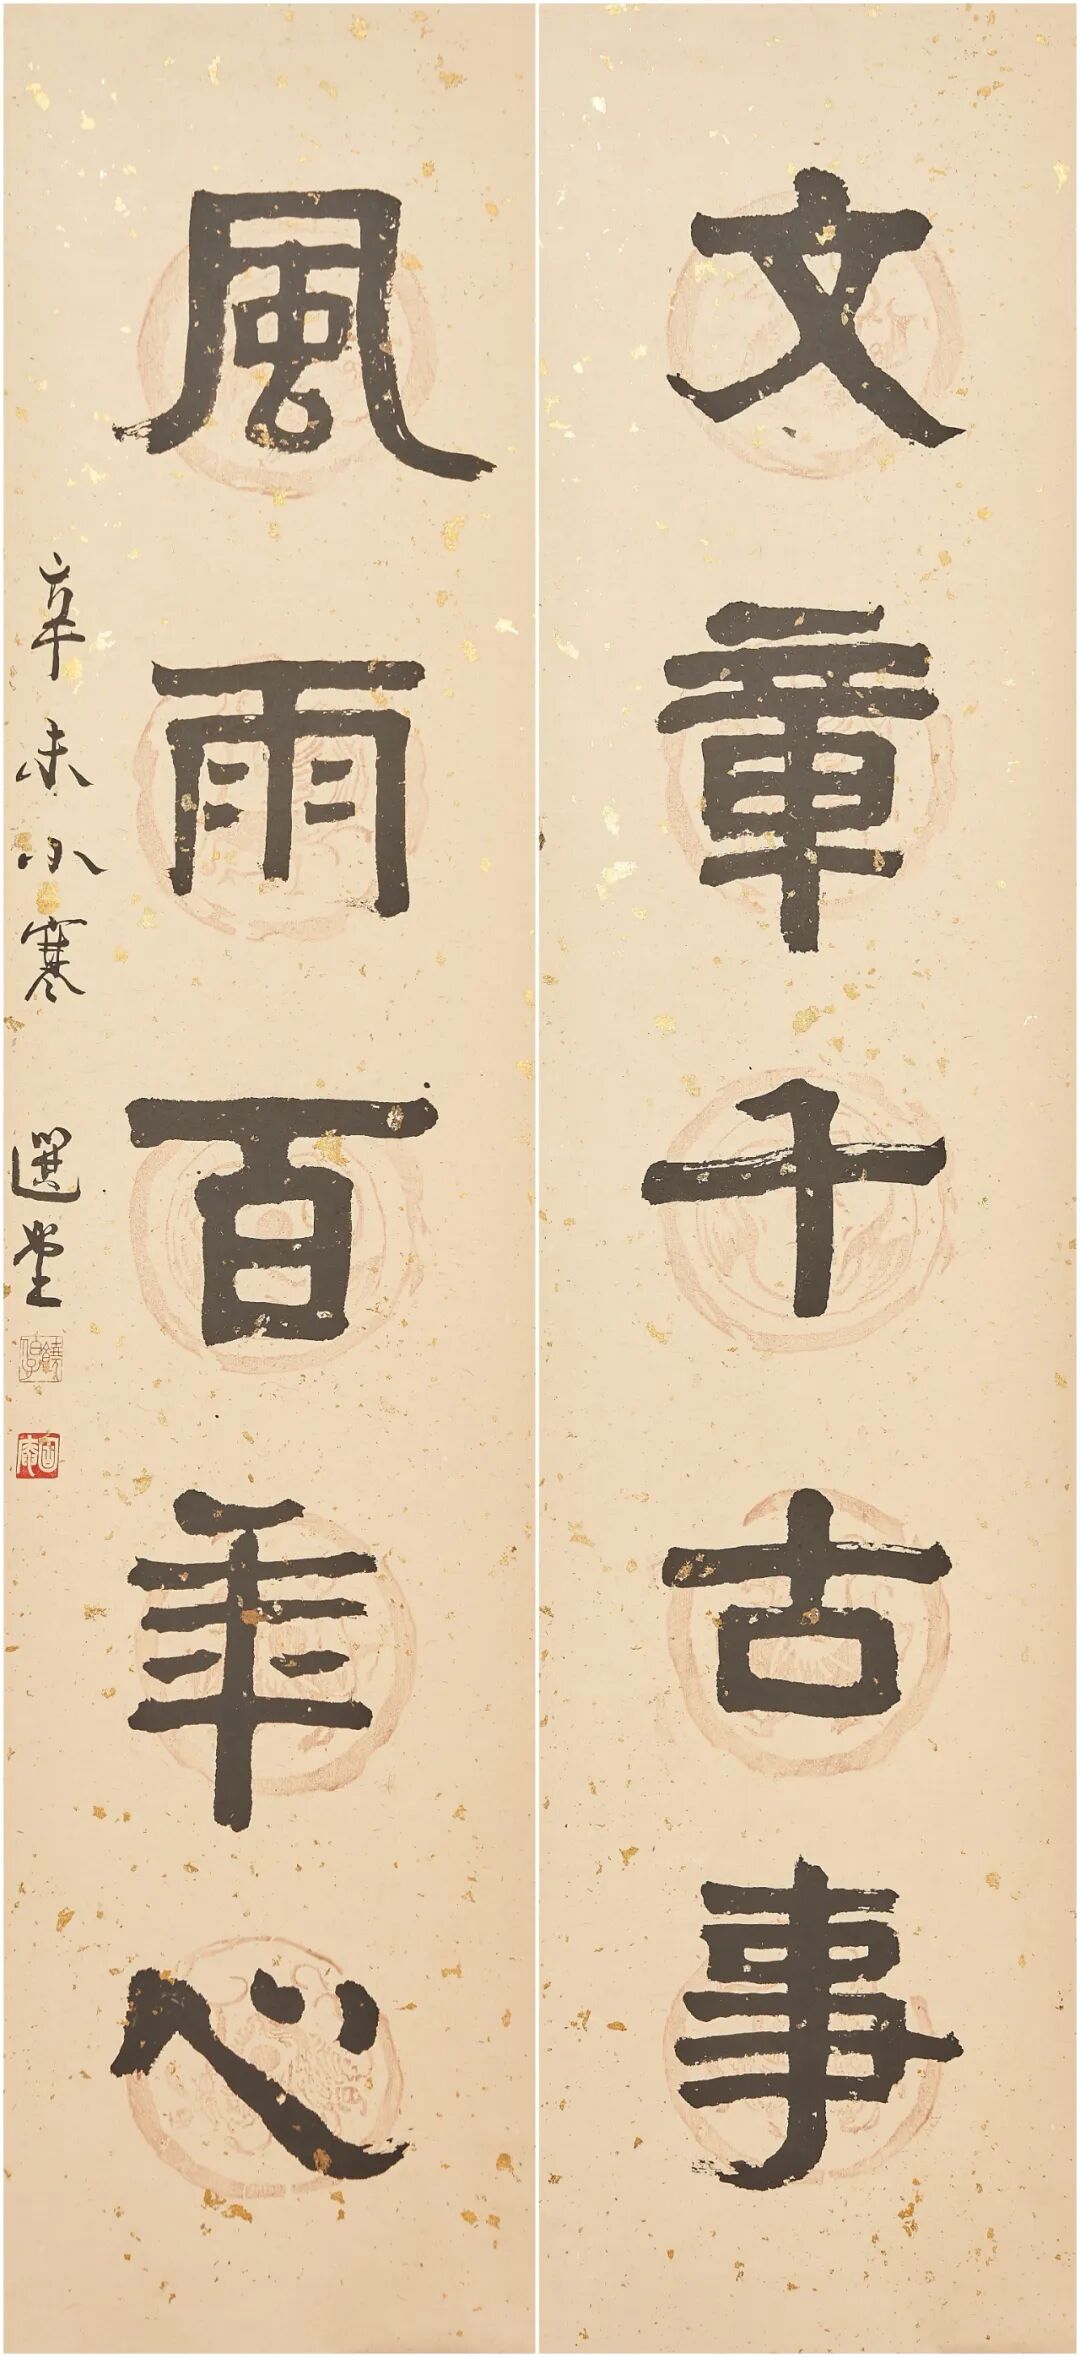 文章千古事
風雨百年心
辛未小寒 選堂
饒
固庵